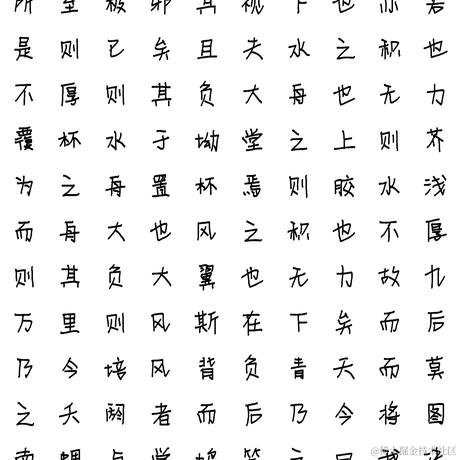 所至极邪其视下也亦若
是则已矣且夫水之积也
不厚则其负大舟也无力
覆杯水于坳堂之上则芥
为之舟置杯焉则胶水浅
而舟大也风之积也不厚
则其负大翼也无力故九
万里则风斯在下矣而后
乃今培风背负青天而莫
之夭阏者而后乃今将图
南蜩与学鸠笑之曰
@稀土掘金技术社区